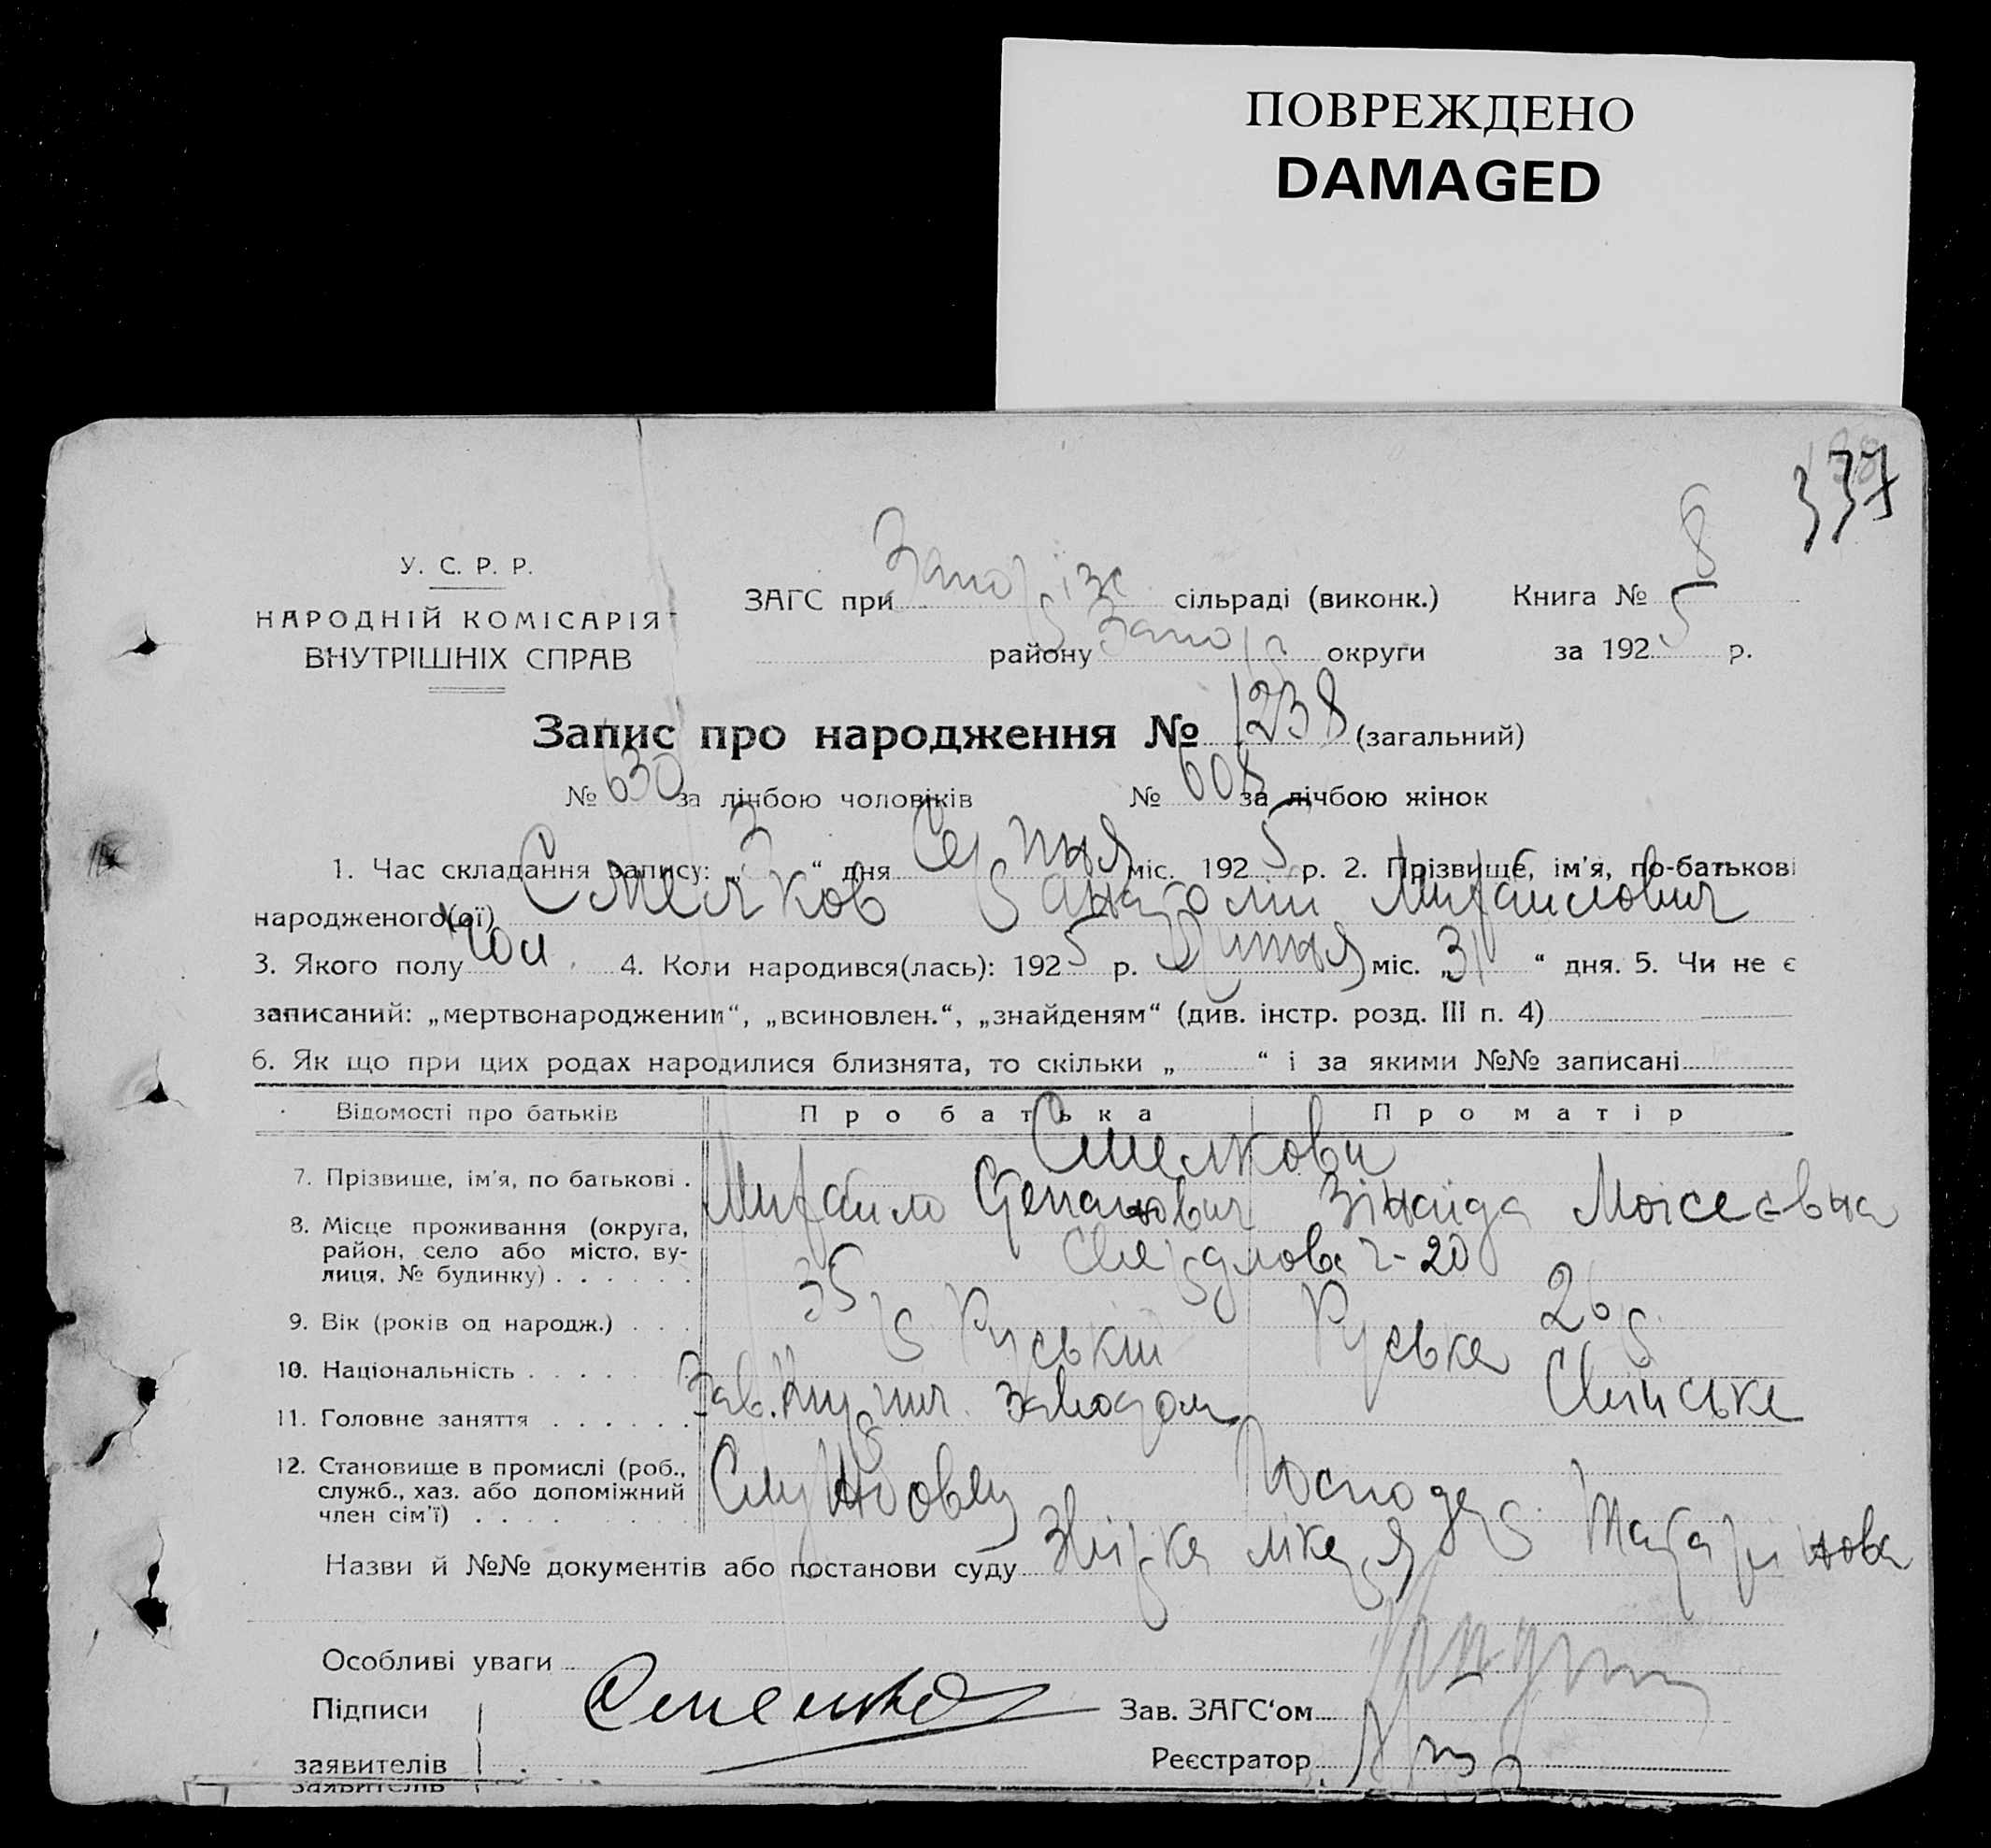 ПОВРЕЖДЕНО
DAMAGED
337
У. С. Р. Р.
НАРОДНІЙ КОМІСАРІЯТ
ВНУТРІШНІХ СПРАВ
ЗАГС при Запоріз сільраді (виконк.) Книга № 8
району Запор округи за 1925 р.
Запис про народження № 1238 (загальний)
№ 630 за лічбою чоловіків № 608 за лічбою жінок
1. Час складання запису: „3“ дня Серпня міс. 1925 р. 2. Прізвище, ім'я, по-батькові
народженого(ої) Смелков Анатолій Михайлович
3. Якого полу чол. 4. Коли народився(лась): 1925 р. Липня міс. „31“ дня. 5. Чи не є
записаний: „мертвонароджений“, „всиновлен.“, „знайденям“ (див. інстр. розд. III п. 4)
6. Як що при цих родах народилися близнята, то скільки „ “ і за якими №№ записані
Відомості про батьків Про батька Про матір
Смелкови
7. Прізвище, ім'я, по батькові . Михайло Степанович Зінаіда Моісеєвна
8. Місце проживання (округа,
район, село або місто, ву-
лиця, № будинку) . . . . . . Свердлова 2-20
9. Вік (років од народж.) . . . 35 р 26 р.
10. Національність . . . . . . . Руський Руська
11. Головне заняття . . . . . . Зав. заводом
12. Становище в промислі (роб.,
служб., хаз. або допоміжний
член сім'ї) . . . . Службовец Господар.
Назви й №№ документів або постанови суду лікаря
Особливі уваги
Підписи Смелков Зав. ЗАГС'ом
заявителів Реєстратор
заявителів